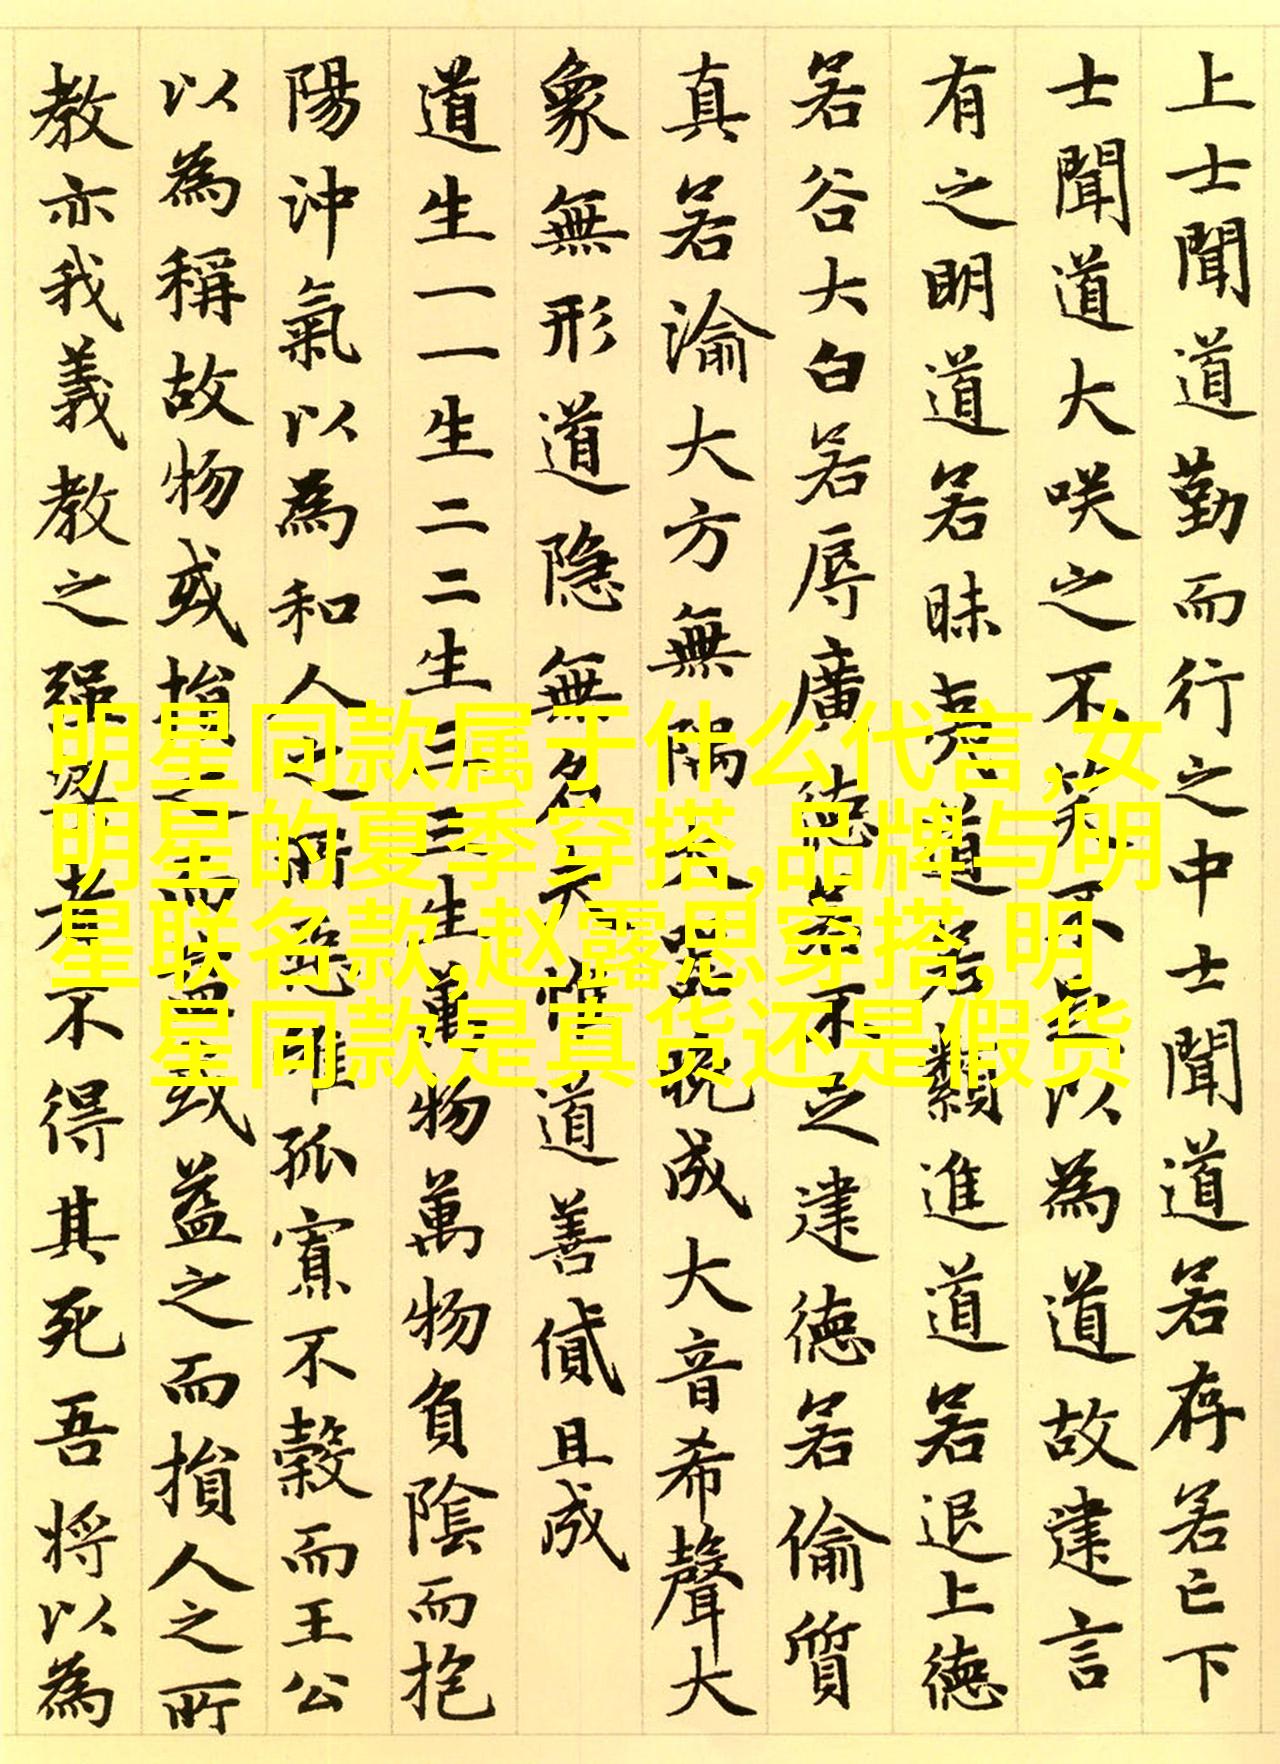 上士聞道勤而行之中士聞道若存若亡下
士聞道大咲之不笑不足以為道故建言
有之明道若昧夷道若類進道若退上德
若谷大白若辱廣德若不足建德若偷質
真若渝大方無隅大器晚成大音希聲大
象無形道隐無名夫惟道善貸且成
道生一一生二二生三三生萬物萬物負陰而抱
陽沖氣以為和人之所惡惟孤寡不穀而王公
以為稱故物或損之而益或益之而損人之所
教亦我義教之强梁者不得其死吾将以為
明星同款属于什么代言,女
明星的夏季穿搭,品牌与明
星联名款,赵露思穿搭,明
星同款是真货还是假货